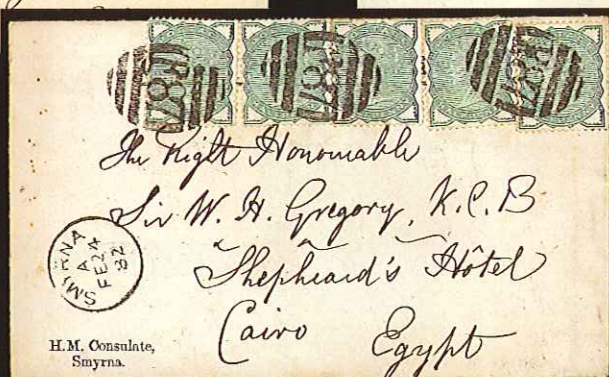 F87
F87
F87
The Right Honourable
Sir W. H. Gregory, K.C.B
Shepheard's Hôtel
Cairo
Egypt
SMYRNA
A
FE 24
82
H.M. Consulate,
Smyrna.